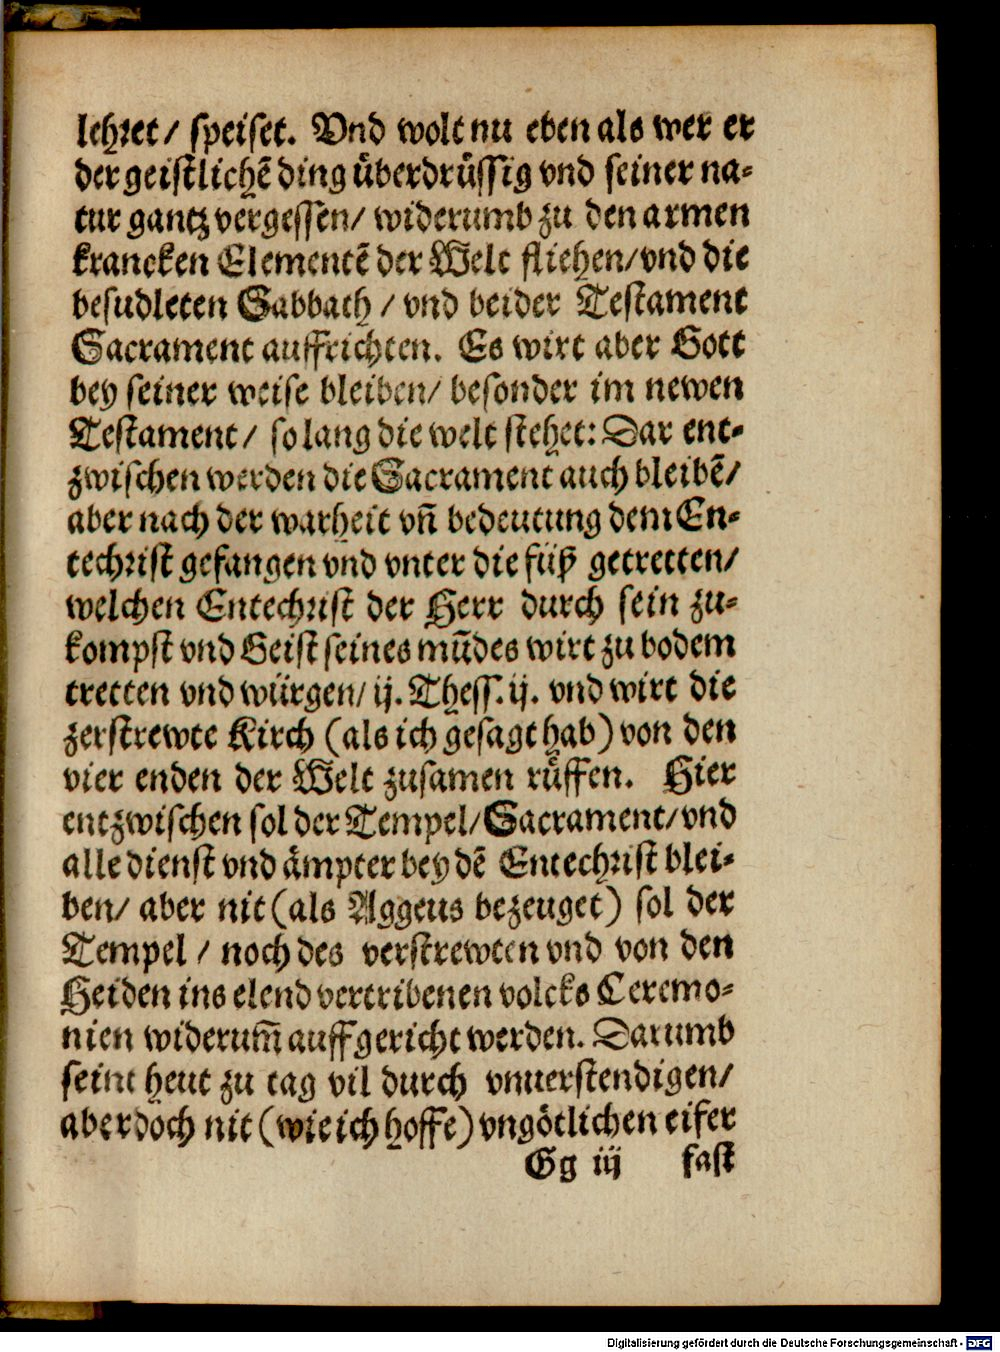 lehret/ speiset. Vnd wolt nu eben als wer er
der geistlichẽ ding überdrüssig vnd seiner na-
tur gantz vergessen/ widerumb zu den armen
krancken Elementẽ der Welt fliehen/ vnd die
besudleten Sabbath / vnd beider Testament
Sacrament auffrichten. Es wirt aber Gott
bey seiner weise bleiben/ besonder im newen
Testament/ so lang die welt stehet: Dar ent-
zwischen werden die Sacrament auch bleibẽ/
aber nach der warheit vñ bedeutung dem En-
techrist gefangen vnd vnter die füß getretten/
welchen Entechrist der Herr durch sein zu-
kompst vnd Geist seines mũdes wirt zu bodem
tretten vnd würgen/ ij. Thess. ij. vnd wirt die
zerstrewte Kirch (als ich gesagt hab) von den
vier enden der Welt zusamen rüffen. Hier
entzwischen sol der Tempel/ Sacrament/ vnd
alle dienst vnd ämpter bey dẽ Entechrist blei-
ben/ aber nit (als Aggeus bezeuget) sol der
Tempel / noch des verstrewten vnd von den
Heiden ins elend vertribenen volcks Ceremo-
nien widerum̃ auffgericht werden. Darumb
seint heut zu tag vil durch vnuerstendigen/
aber doch nit (wie ich hoffe) vngötlichen eifer
Gg iij fast
Digitalisierung gefördert durch die Deutsche Forschungsgemeinschaft - DFG